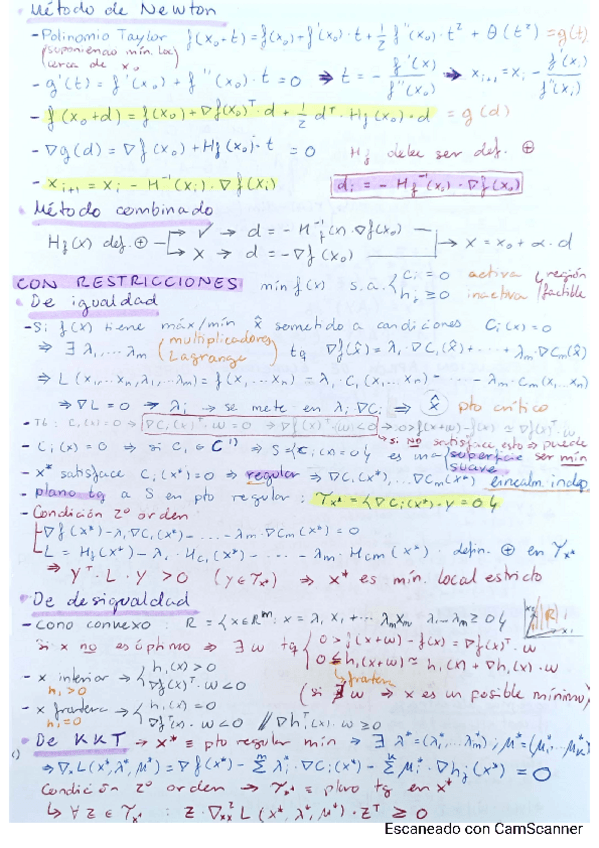 · Método de Newton
- Polinomio Taylor f(x₀+t) = f(x₀) + f'(x₀)·t + 1/2 f''(x₀)·t² + θ(t²) = g(t)
(suponiendo mín. loc. cerca de x₀)
- g'(t) = f'(x₀) + f''(x₀)·t = 0 ⇒ t = - f'(x)/f''(x₀) ⇒ xᵢ₊₁ = xᵢ - f'(xᵢ)/f''(xᵢ)
- f(x₀+d) = f(x₀) + ∇f(x₀)ᵀ·d + 1/2 dᵀ·Hf(x₀)·d = g(d)
- ∇g(d) = ∇f(x₀) + Hf(x₀)·t = 0 Hf debe ser def. ⊕
- xᵢ₊₁ = xᵢ - H⁻¹(xᵢ)·∇f(xᵢ) dᵢ = - Hf⁻¹(xᵢ)·∇f(x₀)
· Método combinado
Hf(x) def. ⊕ → ✓ → d = - H⁻¹f(x)·∇f(x₀)
→ X → d = -∇f(x₀) → x = x₀ + α·d
CON RESTRICCIONES mín f(x) s.a. { cᵢ = 0 activa (región
hᵢ ≥ 0 inactiva factible
· De igualdad
- Si f(x) tiene máx/mín x̂ sometido a condiciones Cᵢ(x) = 0
⇒ ∃ λ₁,... λm (multiplicadores Lagrange) tq ∇f(x̂) = λ₁·∇C₁(x̂) + ··· + λm·∇Cm(x̂)
⇒ L(x₁,...xn, λ₁,...λm) = f(x₁...xn) - λ₁·C₁(x₁...xn) - ··· - λm·Cm(x₁...xn)
⇒ ∇L = 0 → λᵢ → se mete en λᵢ∇Cᵢ ⇒ x̂ pto crítico
- T6: Cᵢ(x) = 0 ⇒ ∇Cᵢ(x*)ᵀ·ω = 0 ⇒ ∇f(x)ᵀ·(ω) < 0 → 0 > f(x+ω) - f(x) ≃ ∇f(x)ᵀ·ω
↳ si NO satisface esto ⇒ puede ser mín
- Cᵢ(x) = 0 ⇒ si Cᵢ ∈ C¹⁾ ⇒ S = {Cᵢ(x) = 0} es una superficie suave
- x* satisface Cᵢ(x*) = 0 ⇒ regular ⇒ ∇C₁(x*),... ∇Cm(x*) linealm. indep
- plano tg a S en pto regular : Tx* = {∇Cᵢ(x*)·y = 0}
- Condición 2º orden
∇f(x*) - λ₁∇C₁(x*) - ... - λm·∇Cm(x*) = 0
L = Hf(x*) - λ₁·Hc₁(x*) - ··· - λm·Hcm(x*). defin. ⊕ en Tx*
⇒ yᵀ·L·y > 0 (y ∈ Tx*) ⇒ x* es mín. local estricto
· De desigualdad
- Cono convexo : R = {x ∈ Rᵐ : x = λ₁x₁ + ··· λmxm λ₁...λm ≥ 0}
Si x no es óptimo ⇒ ∃ ω tq { 0 > f(x+ω) - f(x) = ∇f(x)ᵀ·ω
0 ≤ h₁(x+ω) ≃ h₁(x) + ∇h₁(x)·ω
- x interior → { h₁(x) > 0
h₁ > 0 ∇f(x)ᵀ·ω < 0
↳ frontera
(si ∄ ω ⇒ x es un posible mínimo)
- x frontera → { h₁(x) = 0
h₁ = 0 ∇fᵀ(x)·ω < 0 // ∇h₁ᵀ(x)·ω ≥ 0
· De KKT → x* ≡ pto regular mín ⇒ ∃ λ* = (λ₁*,...λm*) ; μ* = (μ₁*,...μk*)
⇒ ∇ₓL(x*, λ*, μ*) = ∇f(x*) - Σᵐ λᵢ*·∇Cᵢ(x*) - Σᵏ μᵢ*·∇hj(x*) = 0
Condición 2º orden → Tx* ≡ plano tg en x*
↳ ∀ z ∈ Tx* : z·∇²xx L(x*, λ*, μ*)·zᵀ ≥ 0
Escaneado con CamScanner